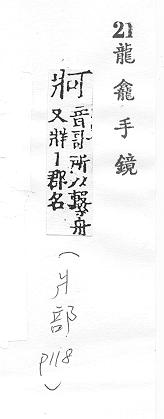 21 龍龕手鏡
牁 音哥所以繫舟
又牂丨郡名
(片部
p118)